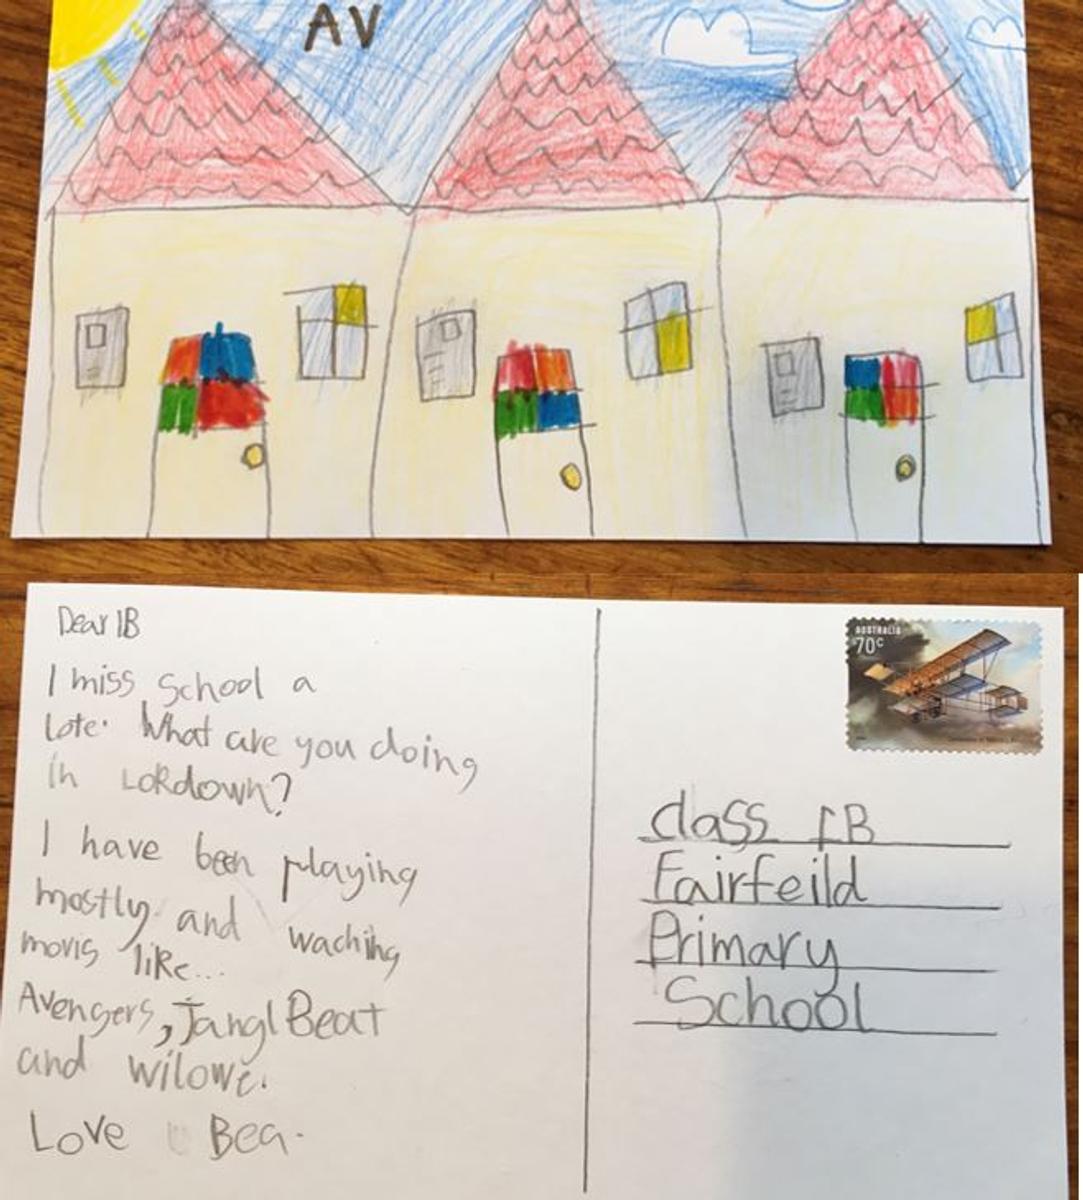 AV
Dear 1B
I miss School a
lote. What are you doing
in LoKdown?
I have been playing
mostly and waching
movis like...
Avengers, Jangl Beat
and wilowe.
Love Bea.
AUSTRALIA
70c
class 1B
Fairfeild
Primary
School